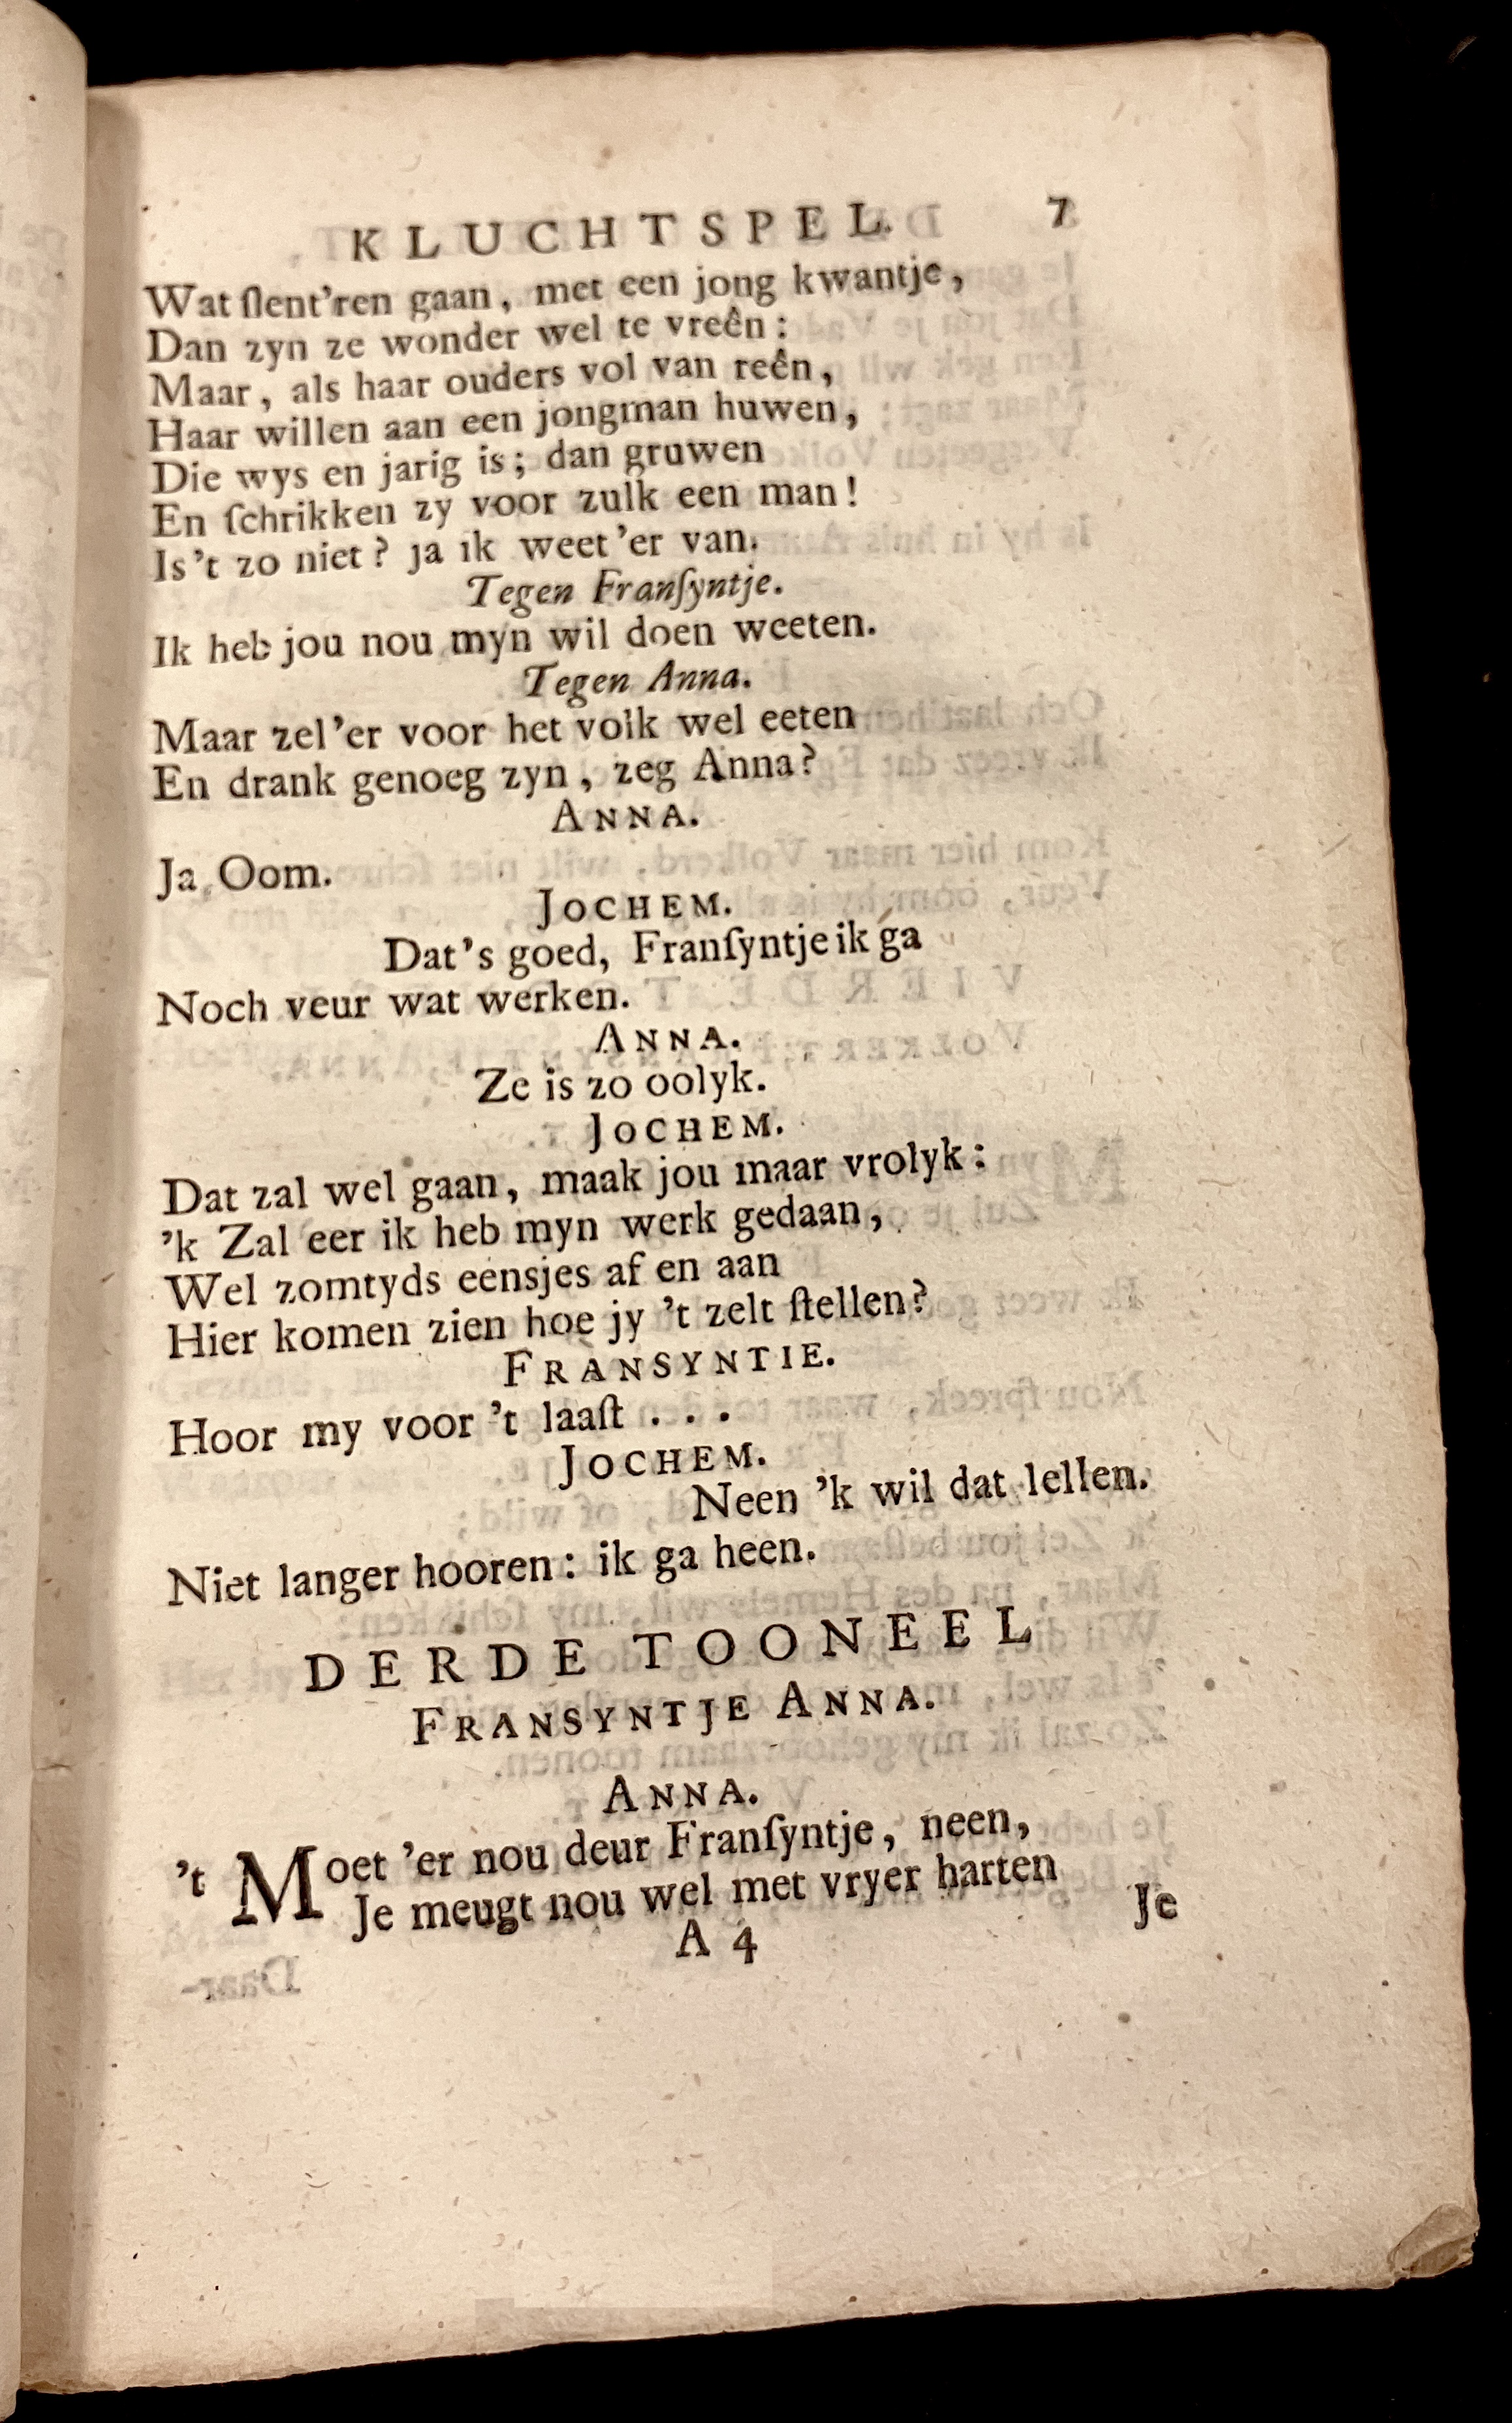 KLUCHTSPEL. 7
Wat ſlent'ren gaan, met een jong kwantje,
Dan zyn ze wonder wel te vreên:
Maar, als haar ouders vol van reên,
Haar willen aan een jongman huwen,
Die wys en jarig is; dan gruwen
En ſchrikken zy voor zulk een man!
Is 't zo niet? ja ik weet 'er van.
Tegen Franſyntje.
Ik heb jou nou myn wil doen weeten.
Tegen Anna.
Maar zel 'er voor het volk wel eeten
En drank genoeg zyn, zeg Anna?
ANNA.
Ja Oom.
JOCHEM.
Dat's goed, Franſyntje ik ga
Noch veur wat werken.
ANNA.
Ze is zo oolyk.
JOCHEM.
Dat zal wel gaan, maak jou maar vrolyk:
'k Zal eer ik heb myn werk gedaan,
Wel zomtyds eensjes af en aan
Hier komen zien hoe jy 't zelt ſtellen?
FRANSYNTIE.
Hoor my voor 't laaſt . . .
JOCHEM.
Neen 'k wil dat lellen.
Niet langer hooren: ik ga heen.
DERDE TOONEEL
FRANSYNTJE ANNA.
ANNA.
't Moet 'er nou deur Franſyntje, neen,
Je meugt nou wel met vryer harten
A 4 Je